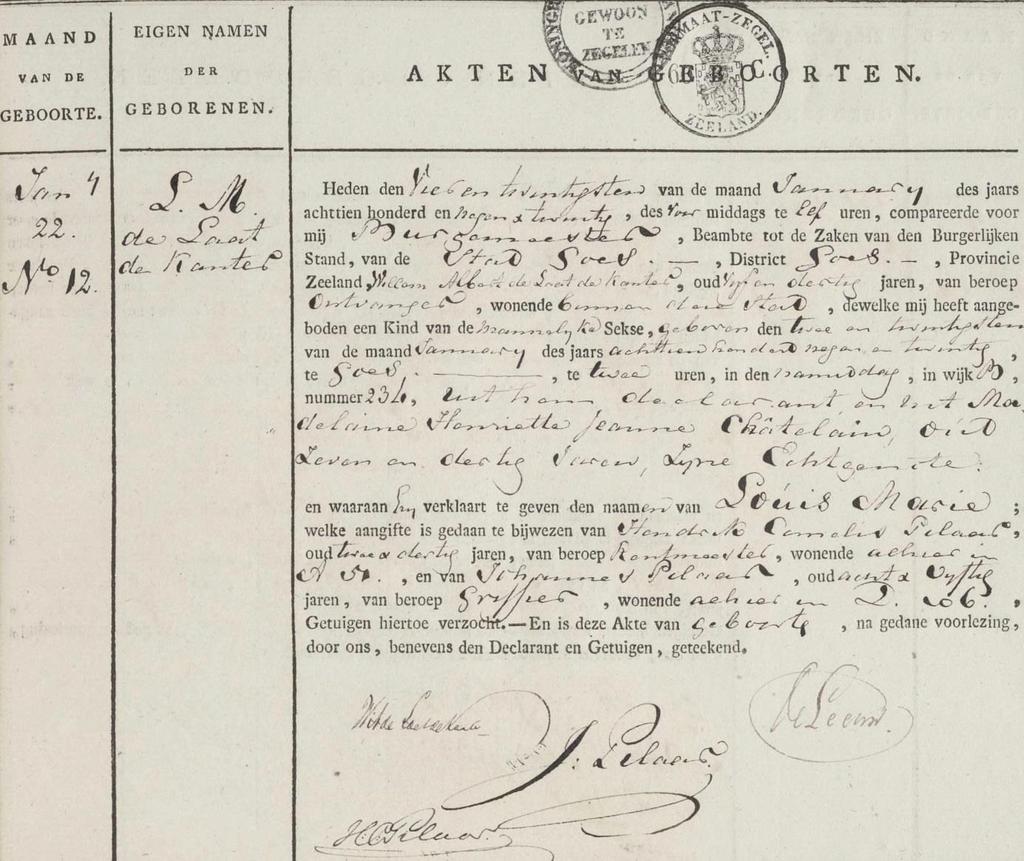 MAAND
VAN DE
GEBOORTE.
EIGEN NAMEN
DER
GEBORENEN.
GEWOON
TE
ZEGELEN
FORMAAT-ZEGEL.
ZEELAND.
AKTEN VAN GEBOORTEN.
Jany
22.
No 12.
L. M.
de Laat
de Kanter
Heden den Vier en twintigsten van de maand January des jaars
achttien honderd en negen & twintig, des Voor middags te Elf uren, compareerde voor
mij Burgemeester, Beambte tot de Zaken van den Burgerlijken
Stand, van de Stad Goes. —, District Goes. —, Provincie
Zeeland, Willem Albert de Laat de Kanter, oud Vijf en dertig jaren, van beroep
Ontvanger, wonende binnen deze Stad, dewelke mij heeft aange-
boden een Kind van de Mannelyke Sekse, geboren den twee en twintigsten
van de maand January des jaars achttien honderd negen en twintig,
te Goes. —, te twee uren, in den namiddag, in wijk B,
nummer 234, uit hem declarant en uit Ma
delaine Henriette Jeanne Châtelain, oud
Zeven en dertig Jaren, Zyne Echtgenote.
en waaraan hy verklaart te geven den naamen van Louis Marie;
welke aangifte is gedaan te bijwezen van Hendrik Cornelis Pilaar,
oud twee & dertig jaren, van beroep Rentmeester, wonende alhier in
A 50., en van Johannes Pilaar, oud acht & Vyftig
jaren, van beroep Griffier, wonende alhier in D. 206.,
Getuigen hiertoe verzocht.—En is deze Akte van geboorte, na gedane voorlezing,
door ons, benevens den Declarant en Getuigen, geteekend.
de Leeuw.
J: Pilaar.
HCPilaar.